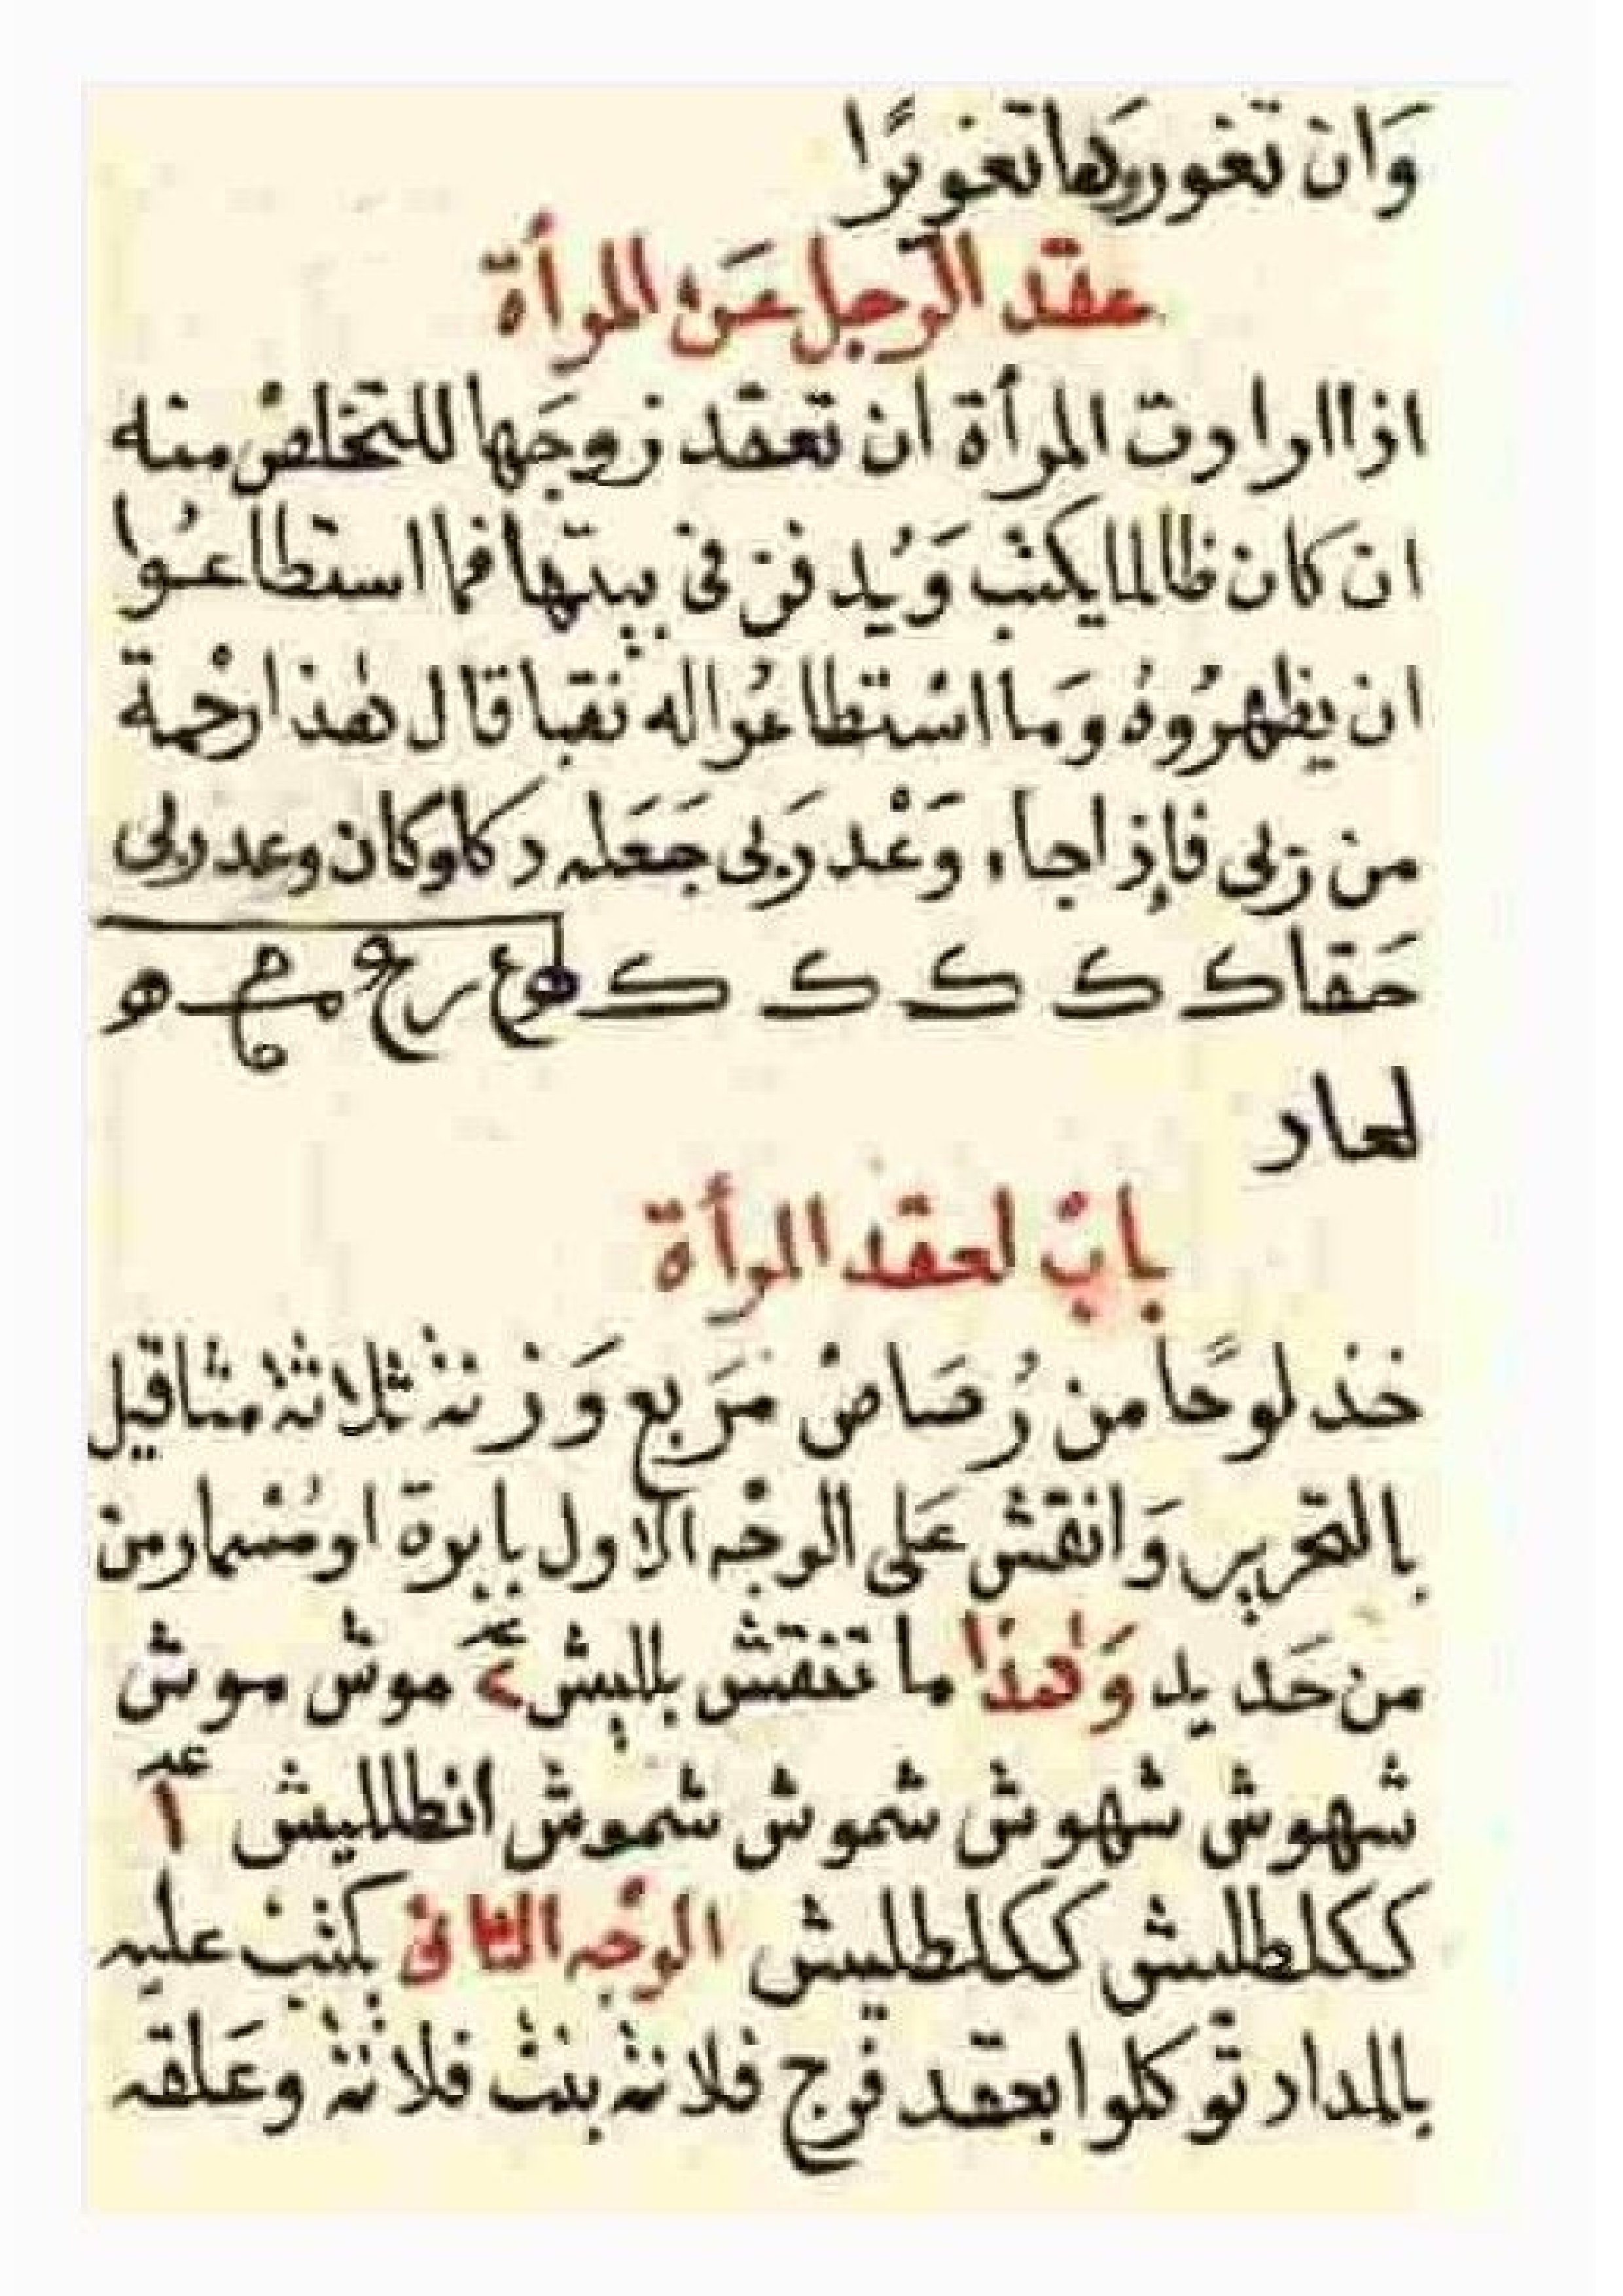 وَان تغورها تغويرًا
عقد الرّجل عَن المرأة
اذا ارادت المرأة ان تعقد زوجَها للتخلصْ منه
ان كان ظالما يكتب وَيُدفن في بيتها فما استطاعُوا
ان يظهرُوهُ وَما اسْتطاعُوا له نقبا قال هٰذا رحْمة
من رَبي فإذا جاء وَعْد رَبي جَعَله دكا وكان وعد ربي
حَقا ك ك ك ك ك
لعار
بابْ لعقد المرأة
خذ لوحًا من رُصَاصْ مَربع وَزنه ثلاثة مثاقيل
بالتحرير وَانقش عَلى الوجْه الاول بابرة او مُسْمار من
من حَديد وَهٰذا ما تنقش بلليش موش موش
شهوش شهوش شموش شموش انطلليش أ
ككلطليش ككلطليش الوجْه الثاني يكتب عليه
بالمداد توَكلوا بعقد فرج فلانة بنت فلانة وعَلقه